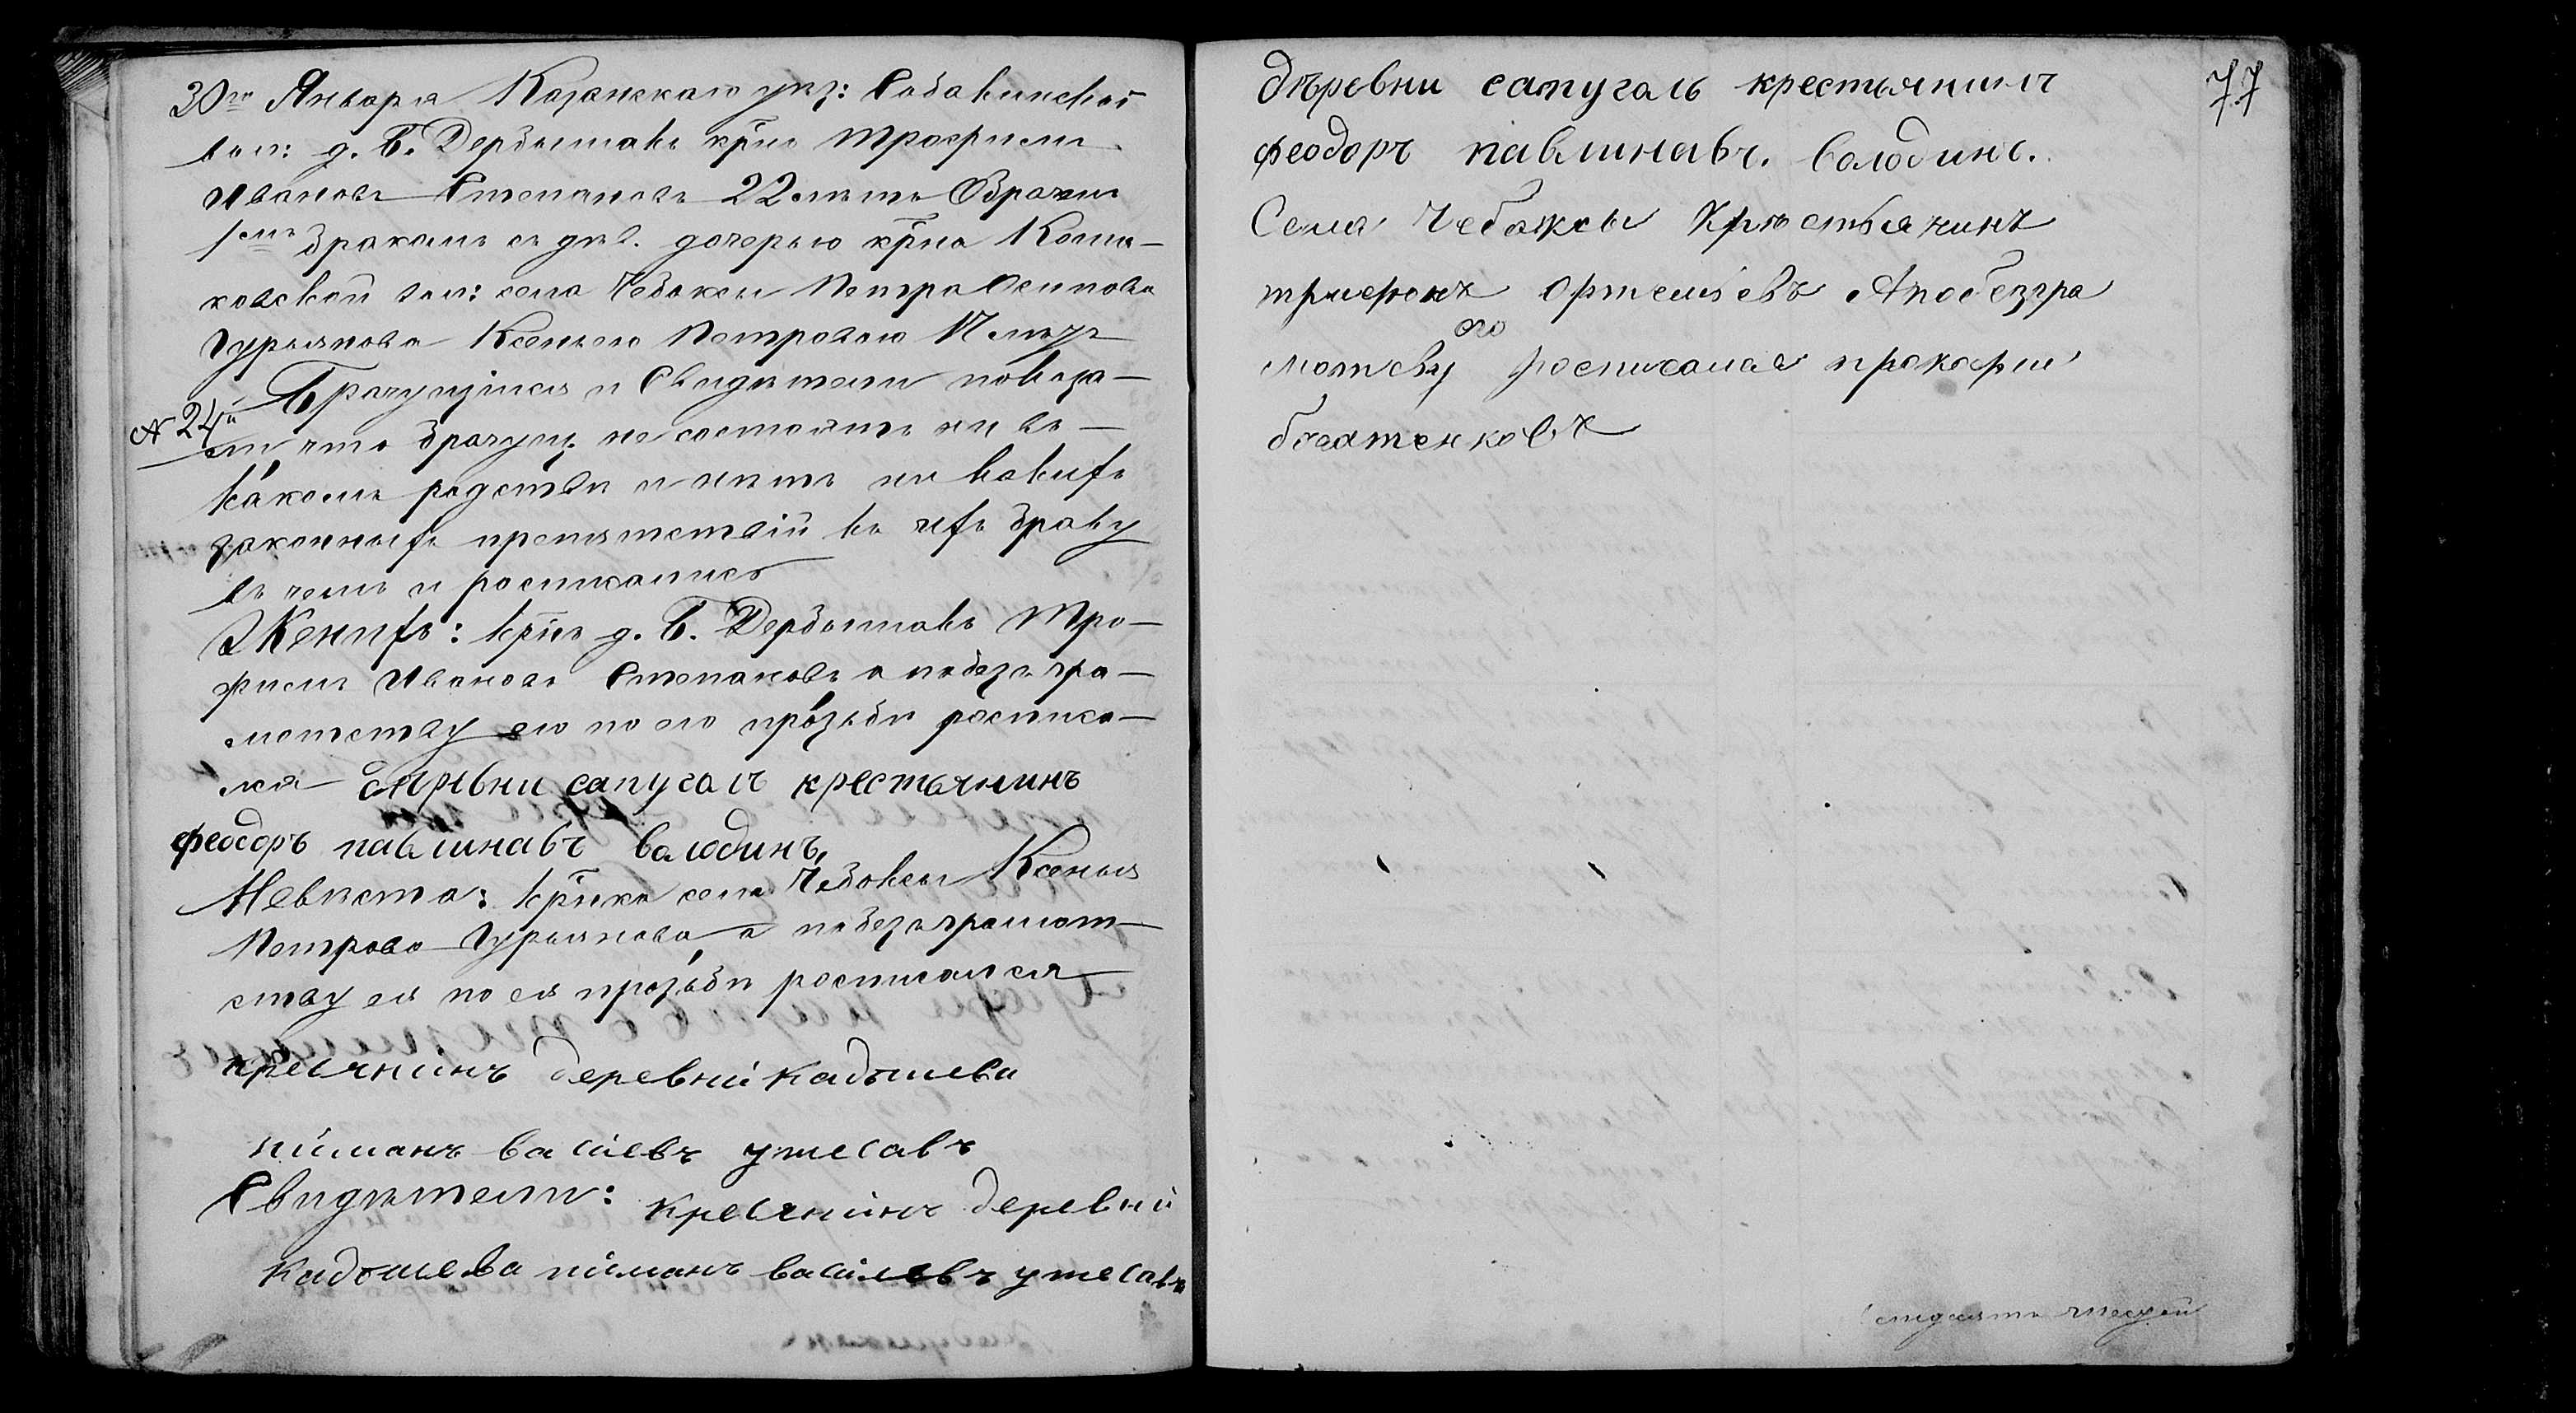 30го Января Казанскаго уѣз: Собакинской
вол: д. Б. Дербышекъ кр̃нъ Трофимъ
Ивановъ Степановъ 22 лѣтъ Обрачен
1емъ бракомъ съ дѣв. дочерью кр̃на Кощა-
ковской вол: села Чебоксы Петра Осипова
Гурьянова Ксеньею Петровою 17 лѣтъ
Брачущіеся и Свидѣтели показа-
№ 24й
ли что брачущ. не состоятъ ни въ
какомъ родствѣ и нѣтъ ни какихъ
законныхъ препятствій къ ихъ браку
въ чемъ и росписались
Женихъ: кр̃нъ д. Б. Дербышекъ Тро-
фимъ Ивановъ Степановъ а по безъ гра-
мотству его по его прозьбѣ росписа-
лся деревни сапуголъ крестьянинъ
феодоръ павлинавъ володинъ.
Невѣста: кр̃нка села Чебоксы Ксенья
Петрова Гурьянова а по безъ грамот-
ству ея по ея прозьбѣ росписался
кресянинъ деревни кадышева
пиманъ васиевъ утесавъ
Свидѣтели: кресянинъ деревни
кадошева пиманъ васілевъ утесавъ
77
дѣревни сапугаль крестьянинъ
феодоръ павлинавъ. володинъ.
Села Чебоксы Крѣстьянинъ
трифонъ Ортемьевъ Апобезгра
его
мотсву росписался прокофий
богатенковъ